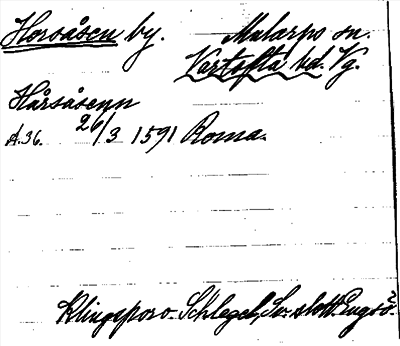 Horsåsen by. Mularps sn.
Vartofta hd. Vg.
Hårsåsenn
d. 36. 26/3 1591 Roma.
Klingspor o. Schlegel, Sv. slott. Engsö.